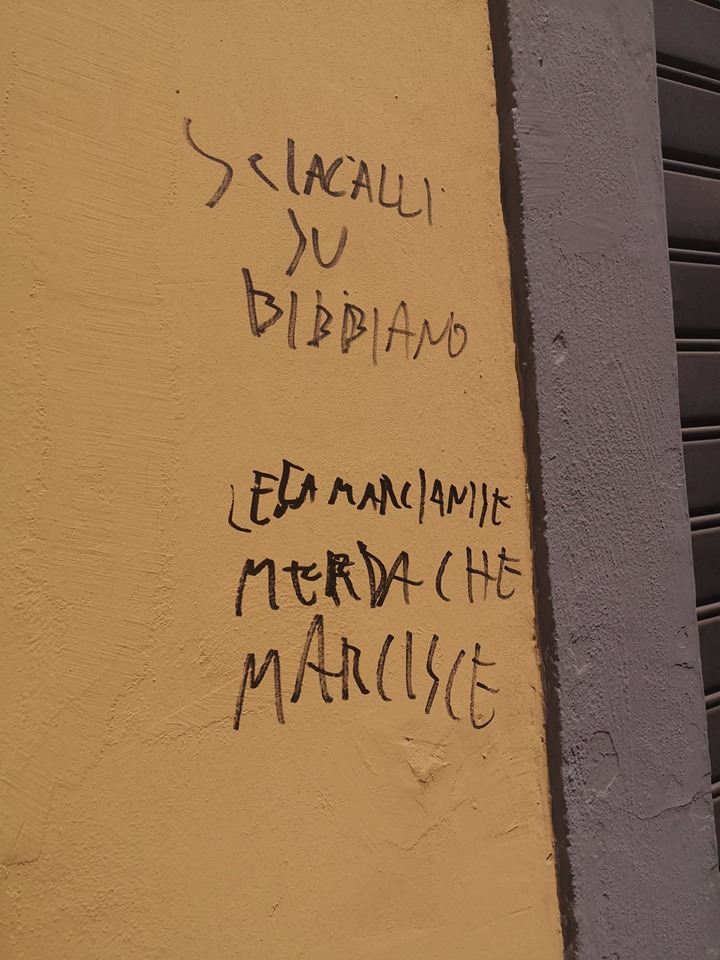 SCIACALLI
SU
BIBBIANO
LEGA MARCIANISE
MERDA CHE
MARCISCE